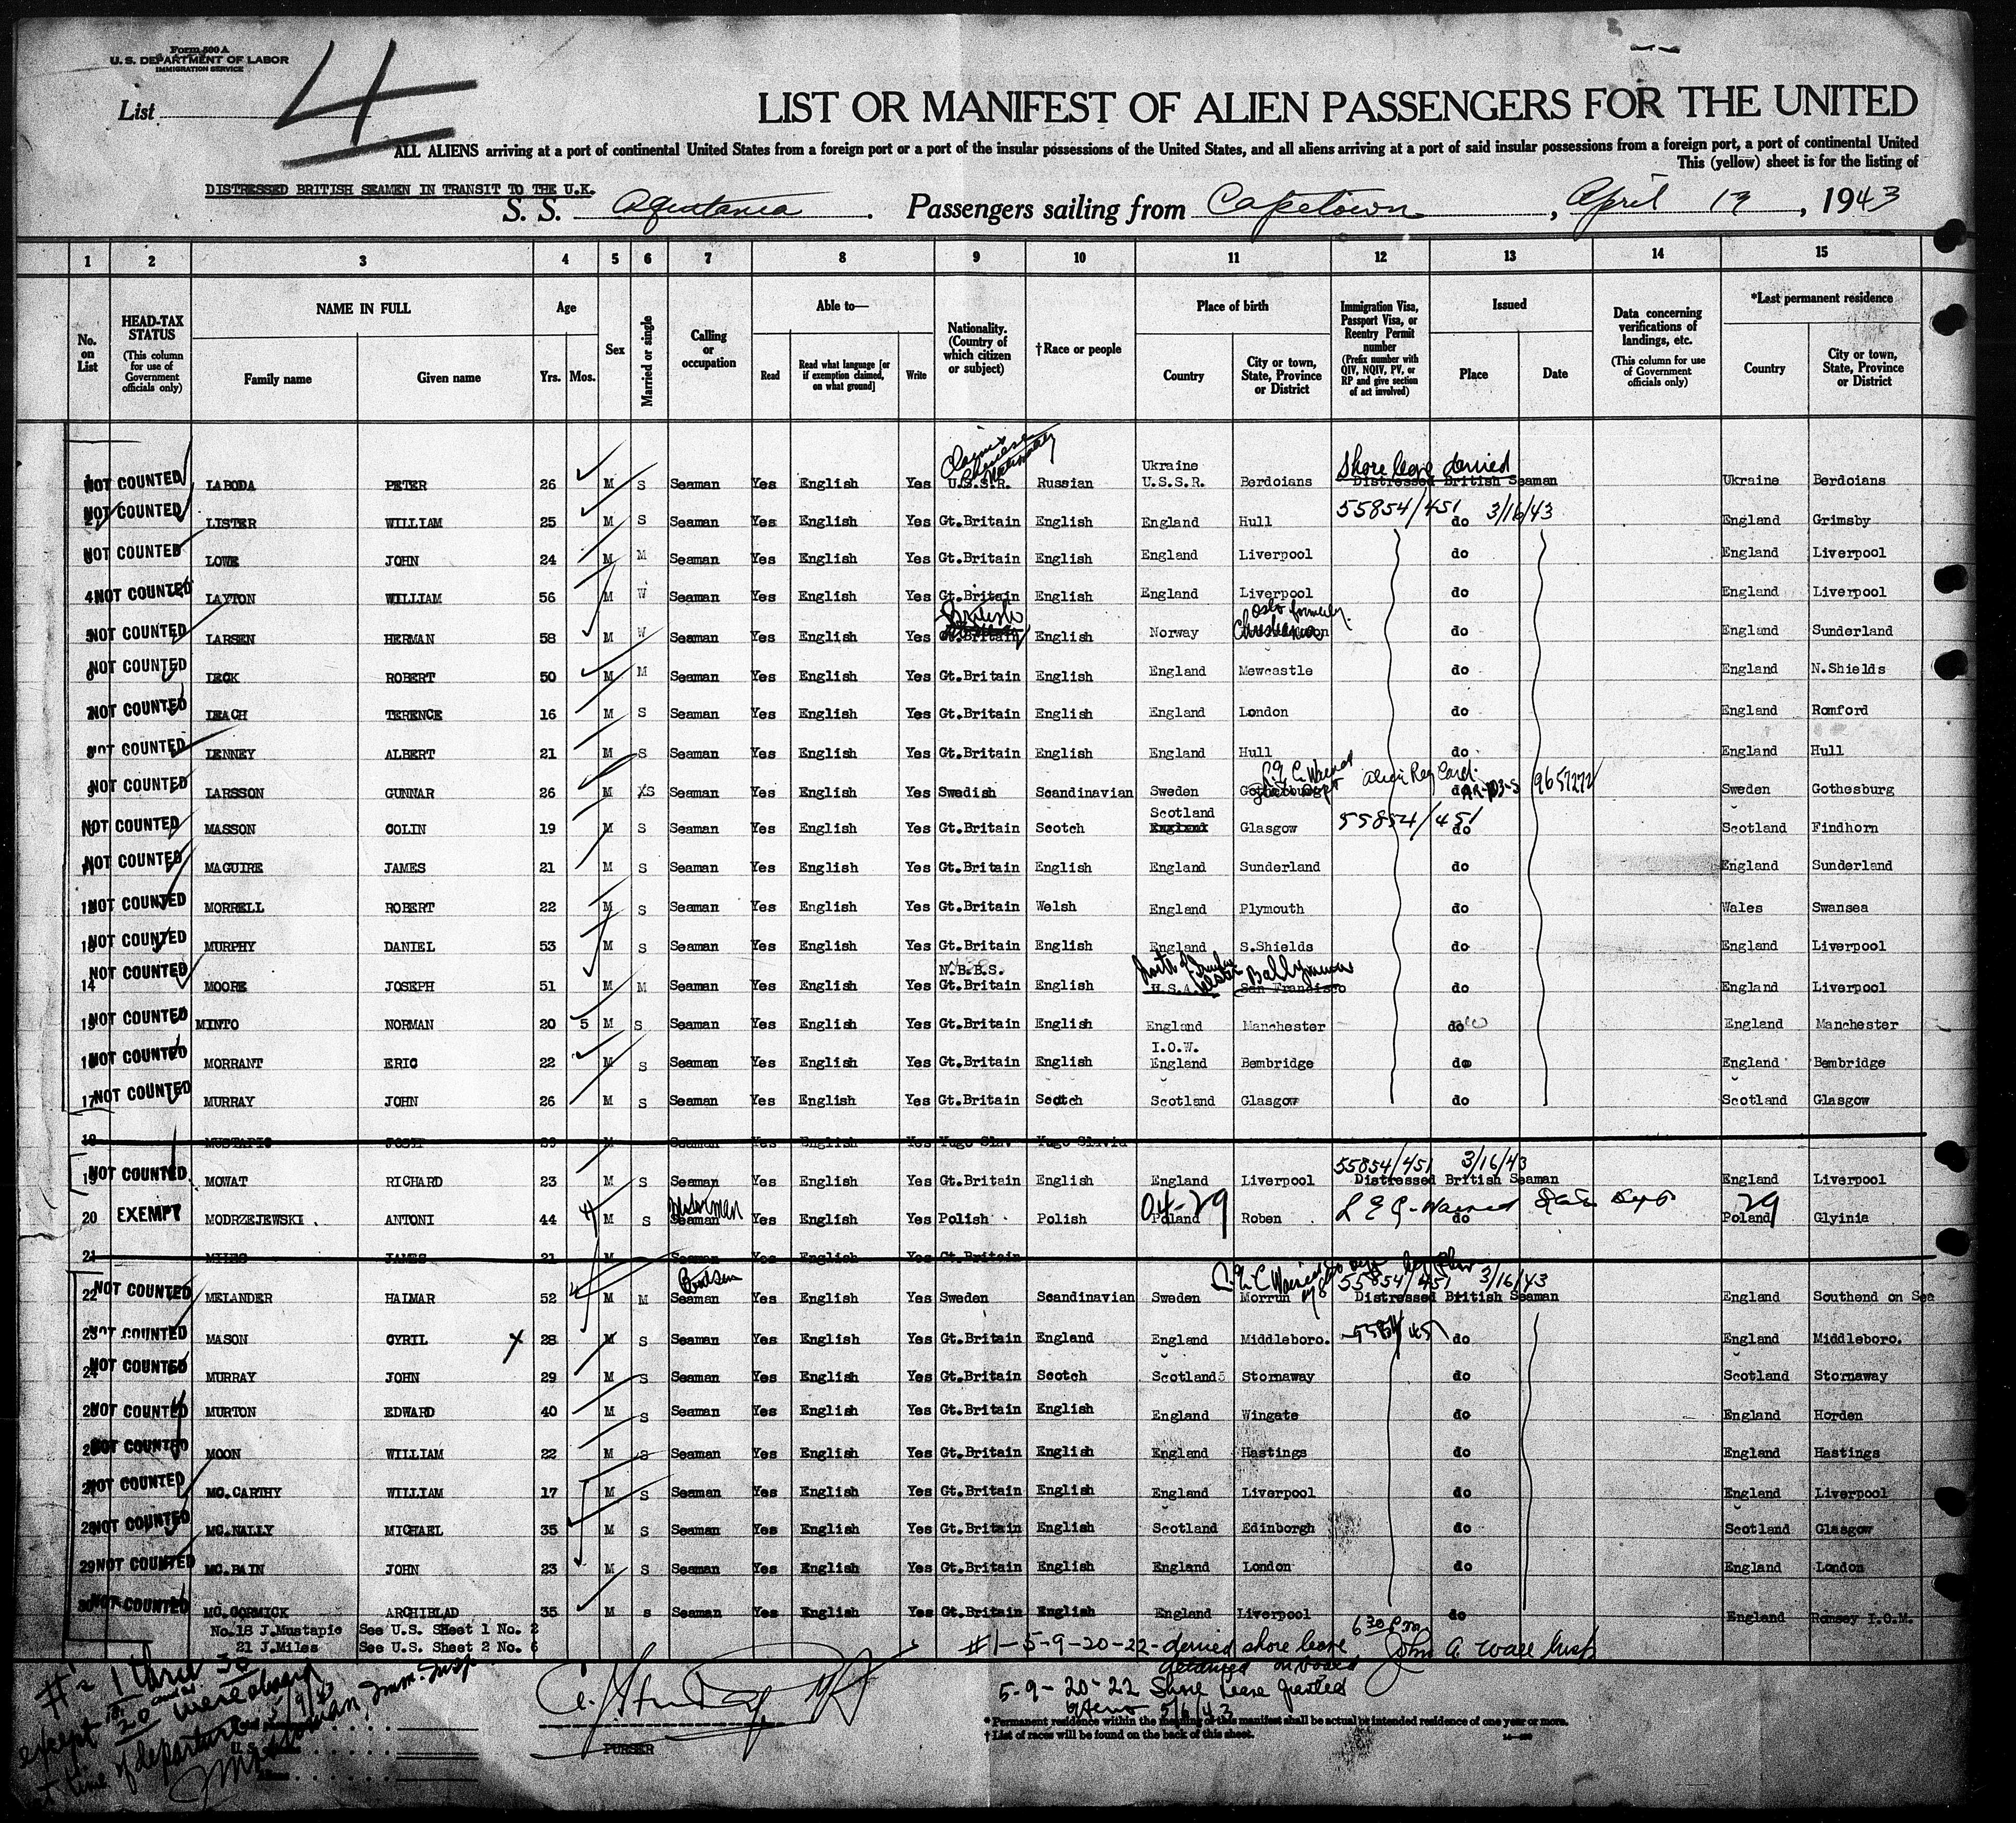 Form 500 A
U. S. DEPARTMENT OF LABOR
IMMIGRATION SERVICE
List 4
LIST OR MANIFEST OF ALIEN PASSENGERS FOR THE UNITED
ALL ALIENS arriving at a port of continental United States from a foreign port or a port of the insular possessions of the United States, and all aliens arriving at a port of said insular possessions from a foreign port, a port of continental United
This (yellow) sheet is for the listing of
DISTRESSED BRITISH SEAMEN IN TRANSIT TO THE U.K.
S. S. Aquitania . Passengers sailing from Capetown , April 19 , 1943
1 2 3 4 5 6 7 8 9 10 11 12 13 14 15
No. on List
HEAD-TAX STATUS (This column for use of Government officials only)
NAME IN FULL Family name Given name
Age Yrs. Mos.
Sex
Married or single
Calling or occupation
Able to— Read Read what language [or if exemption claimed, on what ground] Write
Nationality. (Country of which citizen or subject)
†Race or people
Place of birth Country City or town, State, Province or District
Immigration Visa, Passport Visa, or Reentry Permit number (Prefix number with QIV, NQIV, PV, or RP and give section of act involved)
Issued Place Date
Data concerning verifications of landings, etc. (This column for use of Government officials only)
*Last permanent residence Country City or town, State, Province or District
Claims Chinese Nationality Ukraine Shore leave denied
1 NOT COUNTED LABODA PETER 26 M S Seaman Yes English Yes U.S.S.R. Russian U.S.S.R. Berdoians Distressed British Seaman Ukraine Berdoians
55854/451 3/16/43
2 NOT COUNTED LISTER WILLIAM 25 M S Seaman Yes English Yes Gt.Britain English England Hull do England Grimsby
3 NOT COUNTED LOWE JOHN 24 M M Seaman Yes English Yes Gt.Britain English England Liverpool do England Liverpool
4 NOT COUNTED LAYTON WILLIAM 56 M W Seaman Yes English Yes Gt.Britain English England Liverpool do England Liverpool
British Oslo formerly
5 NOT COUNTED LARSEN HERMAN 58 M W Seaman Yes English Yes Gt.Britain English Norway do England Sunderland
6 NOT COUNTED LECK ROBERT 50 M M Seaman Yes English Yes Gt.Britain English England Mewcastle do England N.Shields
7 NOT COUNTED LEACH TERENCE 16 M S Seaman Yes English Yes Gt.Britain English England London do England Romford
8 NOT COUNTED LENNEY ALBERT 21 M S Seaman Yes English Yes Gt.Britain English England Hull do England Hull
Alien Reg Card. 9657272
9 NOT COUNTED LARSSON GUNNAR 26 M S Seaman Yes English Yes Swedish Scandinavian Sweden do Sweden Gothesburg
Scotland 55854/451
10 NOT COUNTED MASSON COLIN 19 M S Seaman Yes English Yes Gt.Britain Scotch England Glasgow do Scotland Findhorn
11 NOT COUNTED MAGUIRE JAMES 21 M S Seaman Yes English Yes Gt.Britain English England Sunderland do England Sunderland
12 NOT COUNTED MORRELL ROBERT 22 M S Seaman Yes English Yes Gt.Britain Welsh England Plymouth do Wales Swansea
13 NOT COUNTED MURPHY DANIEL 53 M S Seaman Yes English Yes Gt.Britain English England S.Shields do England Liverpool
N.B.B.S. Ballymena
14 NOT COUNTED MOORE JOSEPH 51 M M Seaman Yes English Yes Gt.Britain English U.S.A. San Francisco do England Liverpool
15 NOT COUNTED MINTO NORMAN 20 5 M S Seaman Yes English Yes Gt.Britain English England Manchester do England Manchester
I.O.W.
16 NOT COUNTED MORRANT ERIC 22 M S Seaman Yes English Yes Gt.Britain English England Bembridge do England Bembridge
17 NOT COUNTED MURRAY JOHN 26 M S Seaman Yes English Yes Gt.Britain Scotch Scotland Glasgow do Scotland Glasgow
18 MUSTAPIC JOSIP 39 M Seaman Yes English Yes Yugo Slav Yugo Slavia
55854/451 3/16/43
19 NOT COUNTED MOWAT RICHARD 23 M S Seaman Yes English Yes Gt.Britain English England Liverpool Distressed British Seaman England Liverpool
04-29 29
20 EXEMPT MODRZEJEWSKI ANTONI 44 M S Seaman Yes English Yes Polish Polish Poland Roben do Poland Glyinia
21 MILES JAMES 21 M Seaman Yes English Yes Gt.Britain
55854/451 3/16/43
22 NOT COUNTED MELANDER HALMAR 52 M M Seaman Yes English Yes Sweden Scandinavian Sweden Morrun Distressed British Seaman England Southend on Sea
23 NOT COUNTED MASON CYRIL X 28 M S Seaman Yes English Yes Gt.Britain England England Middleboro. do England Middleboro.
24 NOT COUNTED MURRAY JOHN 29 M S Seaman Yes English Yes Gt.Britain Scotch Scotland Stornaway do Scotland Stornaway
25 NOT COUNTED MURTON EDWARD 40 M S Seaman Yes English Yes Gt.Britain English England Wingate do England Horden
26 NOT COUNTED MOON WILLIAM 22 M S Seaman Yes English Yes Gt.Britain English England Hastings do England Hastings
27 NOT COUNTED MC.CARTHY WILLIAM 17 M S Seaman Yes English Yes Gt.Britain English England Liverpool do England Liverpool
28 NOT COUNTED MC.NALLY MICHAEL 35 M S Seaman Yes English Yes Gt.Britain English Scotland Edinborgh do Scotland Glasgow
29 NOT COUNTED MC.BAIN JOHN 23 M S Seaman Yes English Yes Gt.Britain English England London do England London
30 NOT COUNTED MC.CORMICK ARCHIBLAD 35 M S Seaman Yes English Yes Gt.Britain English England Liverpool do England Ramsey I.O.M.
No.18 J.Mustapic See U.S. Sheet 1 No. 2
21 J.Miles See U.S. Sheet 2 No. 6
#1-5-9-20-22- denied shore leave
detained on board
6 30 P.m. John A Wall Insp
5-9-20-22 Shore Leave granted
5/6/43
#s 1 thru 30
except 18, 20 and 21 were aboard
time of departure 5/9/43
Imm. Insp.
PURSER
* Permanent residence within the meaning of this manifest shall be actual or intended residence of one year or more.
† List of races will be found on the back of this sheet.